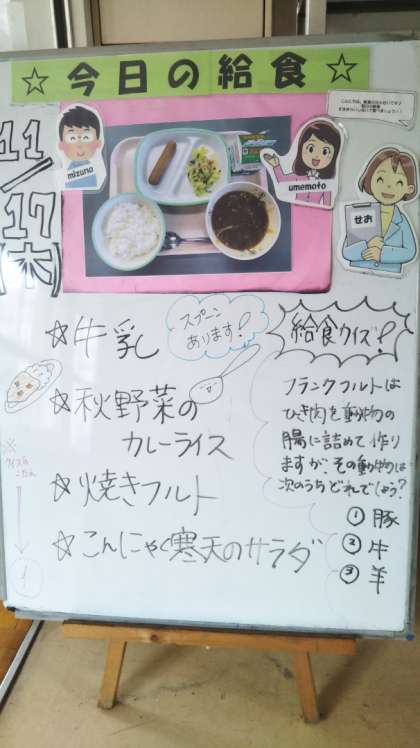 ☆今日の給食☆
11/17(木)
mizuno
umemoto
せお
☆牛乳
スプーン
あります!
☆秋野菜の
カレーライス
☆焼きフルト
☆こんにゃく寒天のサラダ
給食クイズ!
フランクフルトは
ひき肉を動物の
腸に詰めて作り
ますが、その動物は
次のうちどれでしょう?
①豚
②牛
③羊
※
クイズの
こたえ
①